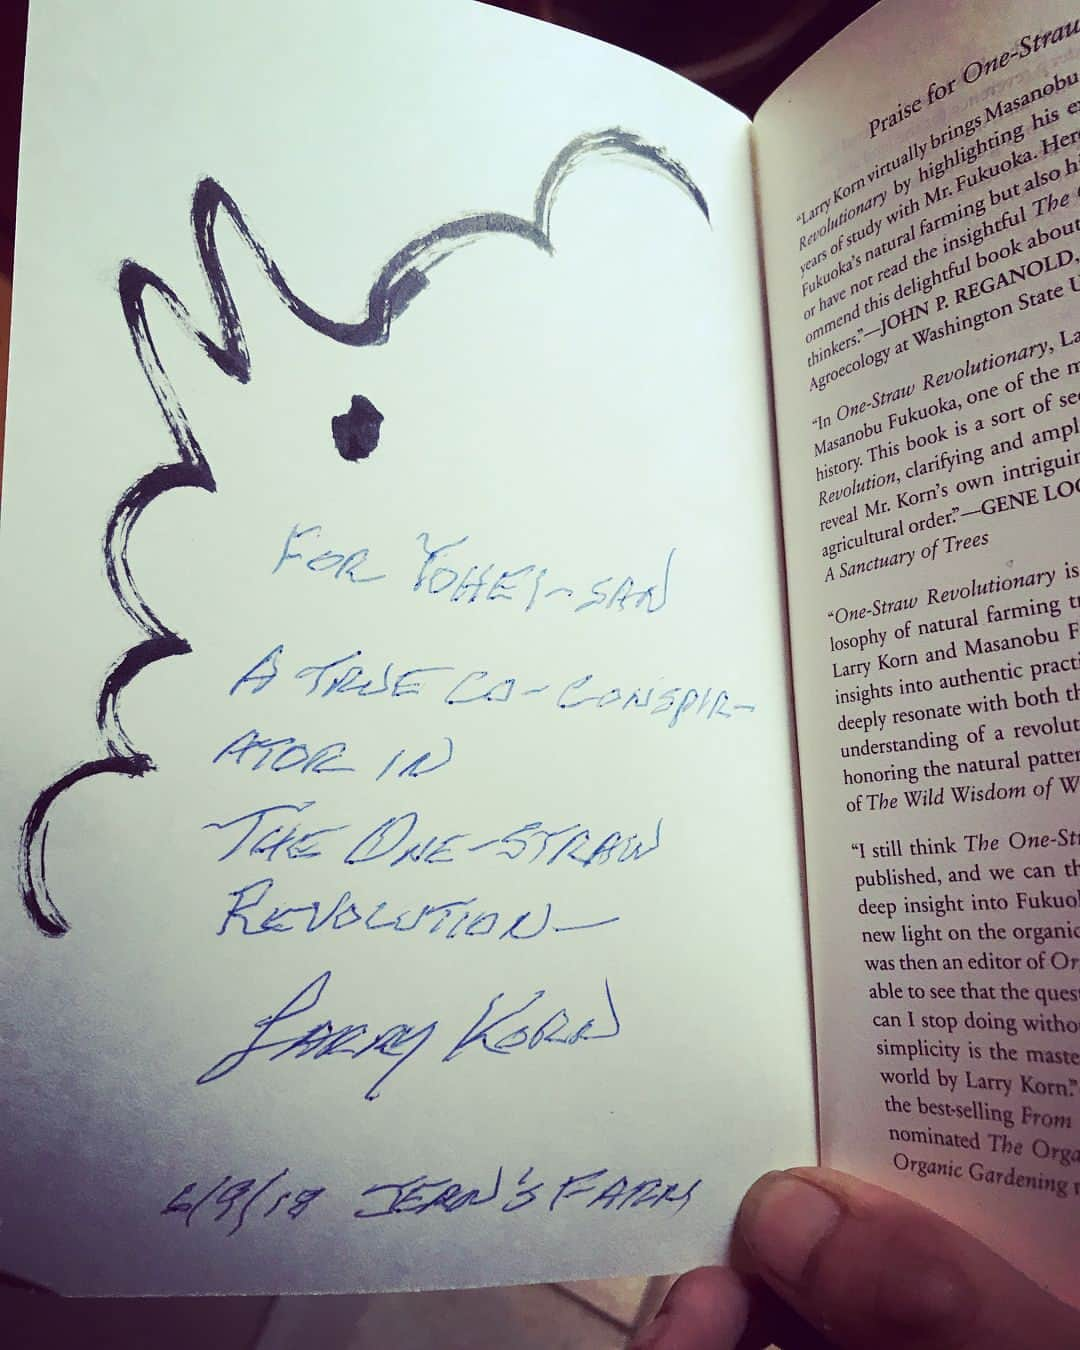 FOR YOHEI-SAN
A TRUE CO-CONSPIR-
ATOR IN
THE ONE-STRAW
REVOLUTION—
LARRY KORN
6/9/18 JEAN'S FARM
Praise for One-Straw
"Larry Korn virtually brings Masanobu
Revolutionary by highlighting his
years of study with Mr. Fukuoka. Here
Fukuoka's natural farming but also
or have not read the insightful The
ommend this delightful book about
thinkers."—JOHN P. REGANOLD,
Agroecology at Washington State U
"In One-Straw Revolutionary, La
Masanobu Fukuoka, one of the m
history. This book is a sort of
Revolution, clarifying and ampl
reveal Mr. Korn's own intriguin
agricultural order."—GENE LO
A Sanctuary of Trees
"One-Straw Revolutionary is
losophy of natural farming
Larry Korn and Masanobu F
insights into authentic practi
deeply resonate with both th
understanding of a revolut
honoring the natural patter
of The Wild Wisdom of W
"I still think The One-Str
published, and we can th
deep insight into Fukuo
new light on the organic
was then an editor of Or
able to see that the ques
can I stop doing witho
simplicity is the maste
world by Larry Korn."
the best-selling From
nominated The Orga
Organic Gardening